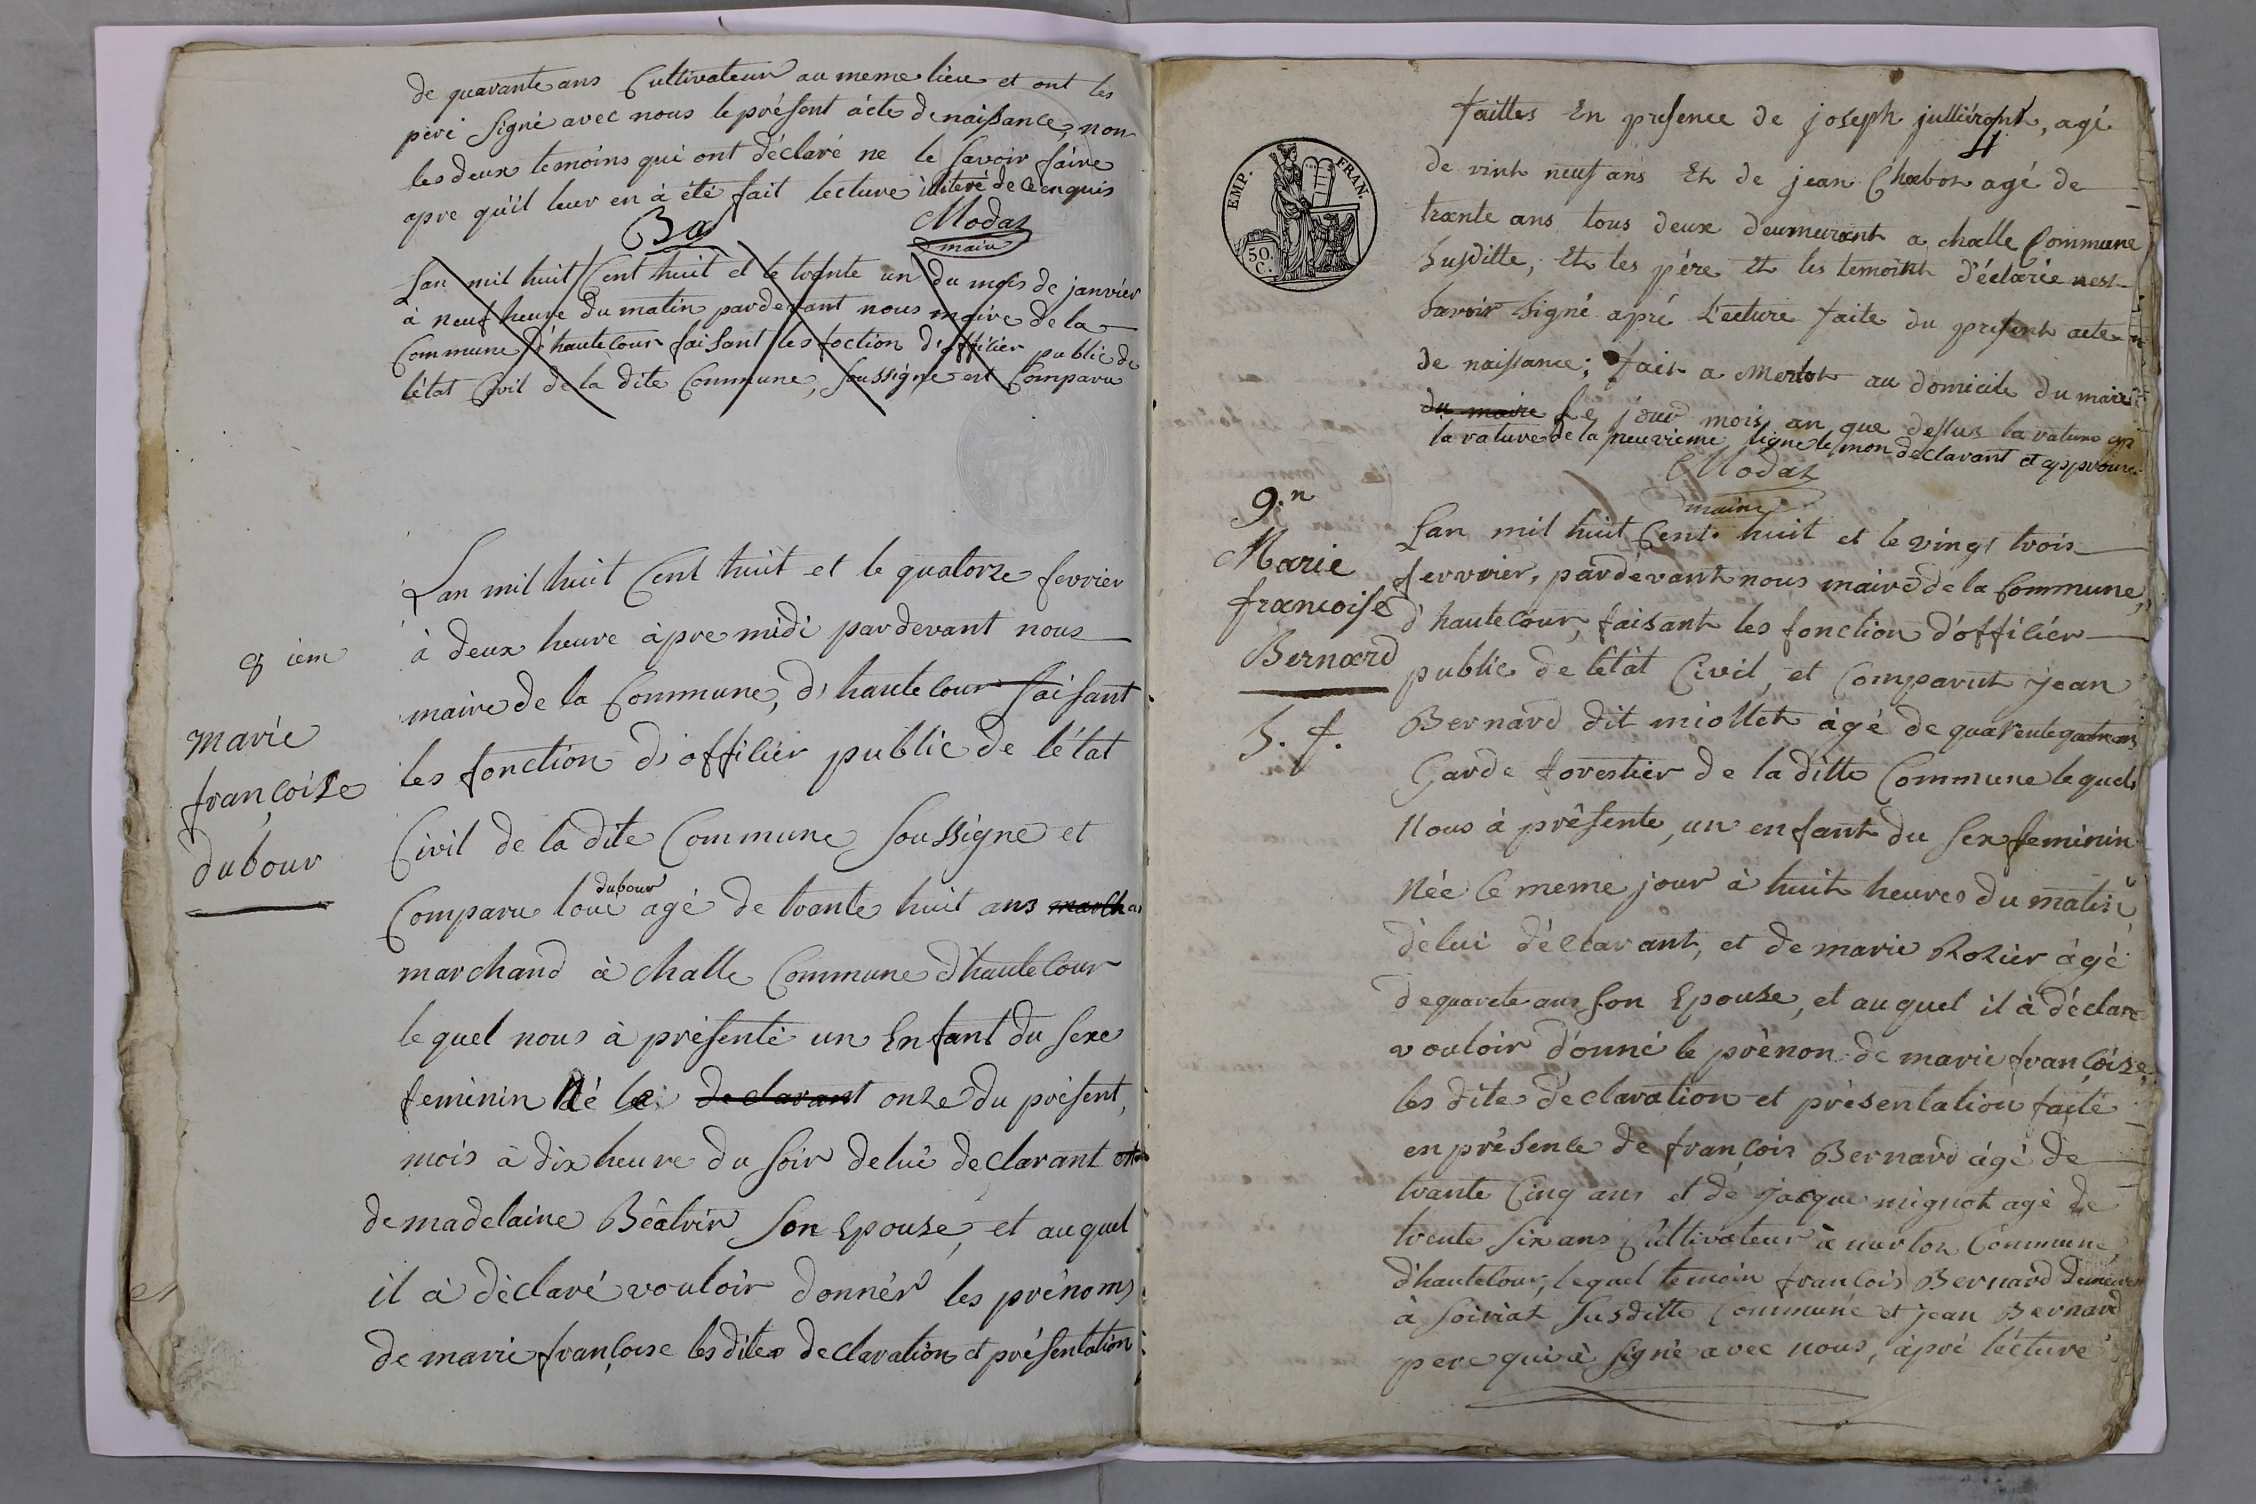 de quarante ans Cultivateur au meme lieu et ont les
pere signé avec nous le présent acte de naissance, non
les deux temoins qui ont déclaré ne le savoir faire
apre qu'il leur en à été fait lecture illiteré de ce enquis
Modas
maire
Lan mil huit Cent huit et le trente un du mois de janvier
à neuf heure du matin pardevant nous maire de la
Commune d'hautecour faisant les foction d'officier public de
l'état Civil de la dite Commune, soussigne est Comparu
Lan mil huit Cent huit et le quatorze fevrier
à deux heure àpre midi pardevant nous
8 iem
maire de la Commune, d'hautecour faisant
marie
les fonction d'officier public de l'état
françoise
Civil de la dite Commune soussigne et
dubour
dubour
Comparu loui agé de trante huit ans marcha
marchand à challe Commune d'hautecour
lequel nous à présenté un Enfant du sexe
feminin Né le declarant onze du présent,
mois à dix heure du soir delui declarant et
de madelaine Béatrix son Epouse, et auquel
il à déclaré vouloir donnér les prénoms
de marie françoise lesdites declaration et présentation
4
EMP. FRAN.
50.
C.
faittes En presence de joseph julliéront, agé
de vint neuf ans Et de jean Chabot agé de
trante ans tous deux deumeurant a challe Commune
susditte, Et les pére Et les temoint déclarée nest
savoir signé aprè Lecture faite du present acte
de naissance; fait a Merlot au domicile du maire
du maire Le jour mois an que dessus la rature ap
la rature de la neuvieme ligne le mon declarant et approuve
Modas
maire
9.n
Marie
francoise
Bernard
S. f.
Lan mil huit Cent huit et le vingt trois
fevrier, pardevant nous maire de la Commune,
d'hautecour, faisant les fonction d'officier
public de l'état Civil, et Comparut jean
Bernard dit miollet àgé de quarente quatre ans
Garde forestier de la ditte Commune lequel
Nous à présente, un enfant du sex feminin
Née le meme jour à huit heures du matin
délui déclarant, et de marie Rozier âgé
de quarete ans son Epouse, et auquel il à déclare
vouloir donné le prénon de marie françoise,
les dite déclaration et présentation faite
en présence de françois Bernard âgé de
trante Cinq ans et de jacque mignot agé de
trente six ans Cultivateur à merloz Commune
d'hautecour, lequel temoin françois Bernard demeurant
à soiriat susditte Commune et jean Bernard
pere qui à signé avec nous, àpré lécture